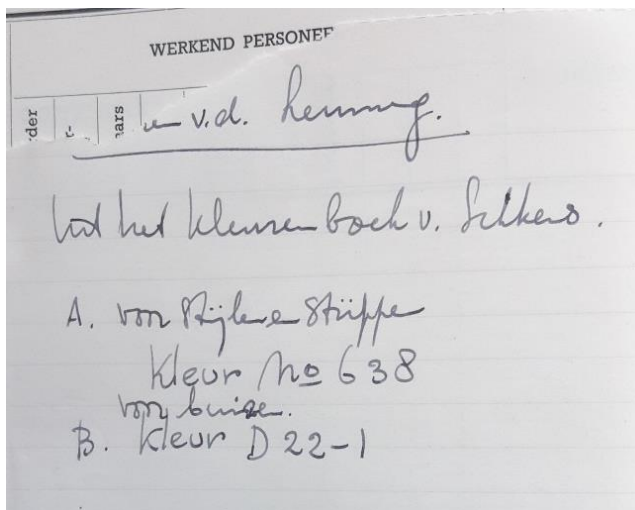 WERKEND PERSONEE
der
r-
aars
v.d. 
Uit het kleurenboek v. Sikkens.
A. voor Stijlen en
Kleur No 638
voor buizen.
B. Kleur D 22-1